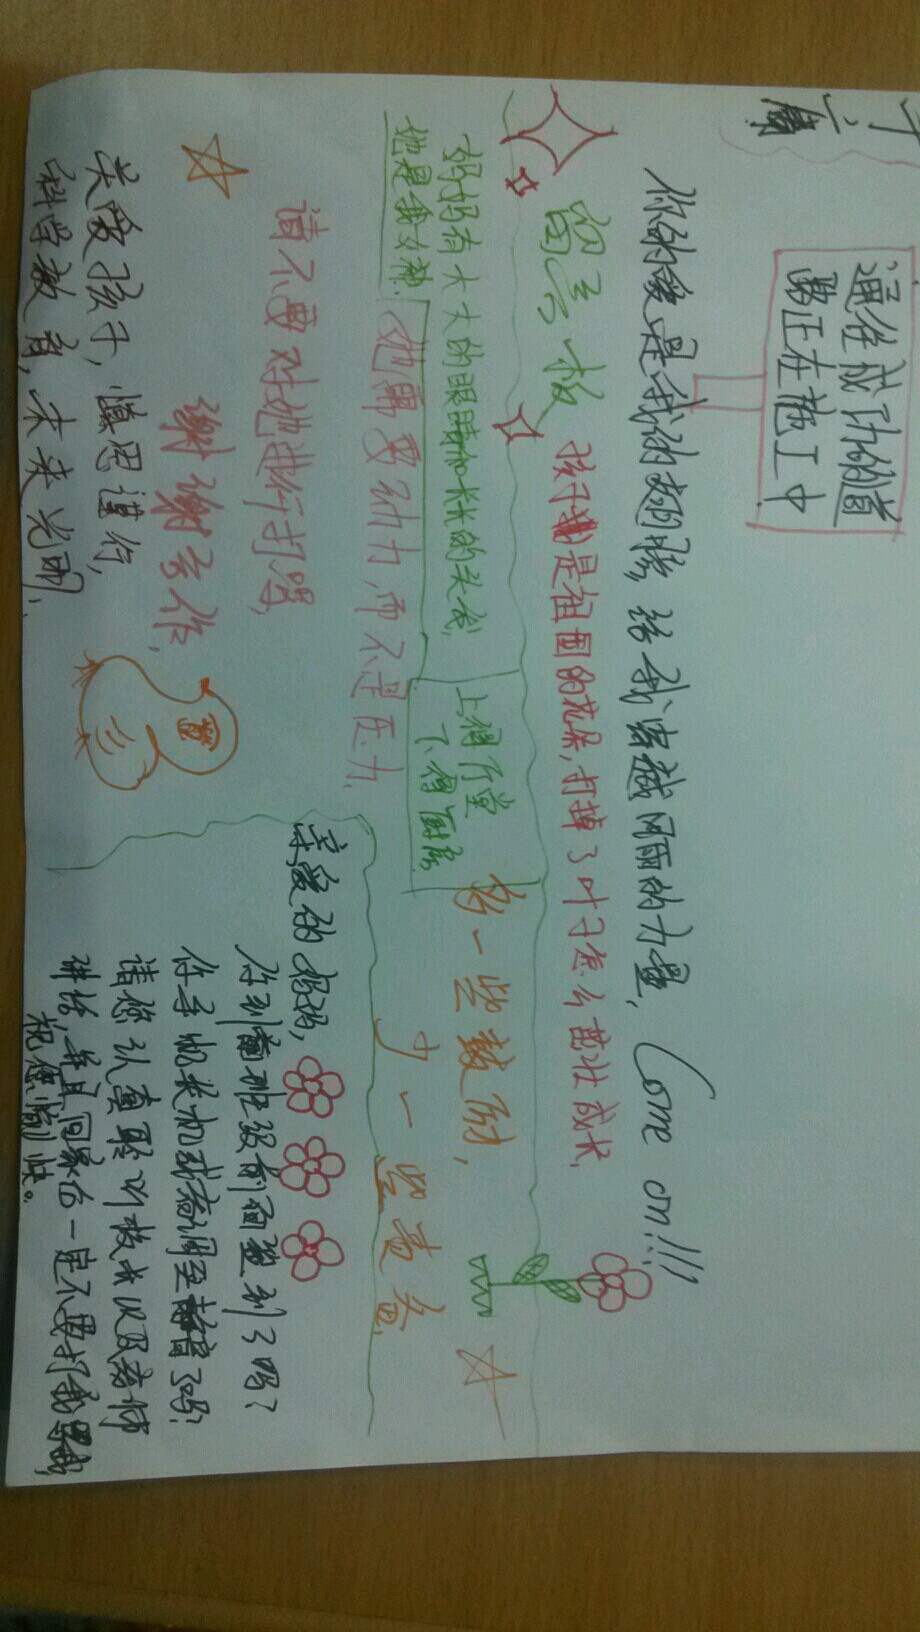 通往成功的道
路正在施工中
你的爱是我的翅膀，给我穿越风雨的力量，Come on!!!
留言板
孩子是祖国的花朵，打掉了叶子怎么茁壮成长，
妈妈有大大的眼睛和长长的头发，
她是我女神.
上得厅堂
下得厨房
多一些鼓励，
少一些责备，
她需要动力，而不是压力，
请不要对她进行打骂，
谢谢合作，
关爱孩子，慎思谨行，
科学教育，未来光明，
亲爱的妈妈，
你到班级前面签到了吗？
你手机关机或者调至静音了吗？
请您认真聆听校长以及老师
讲话，并且回家后一定不要打我骂我，
祝您愉快。